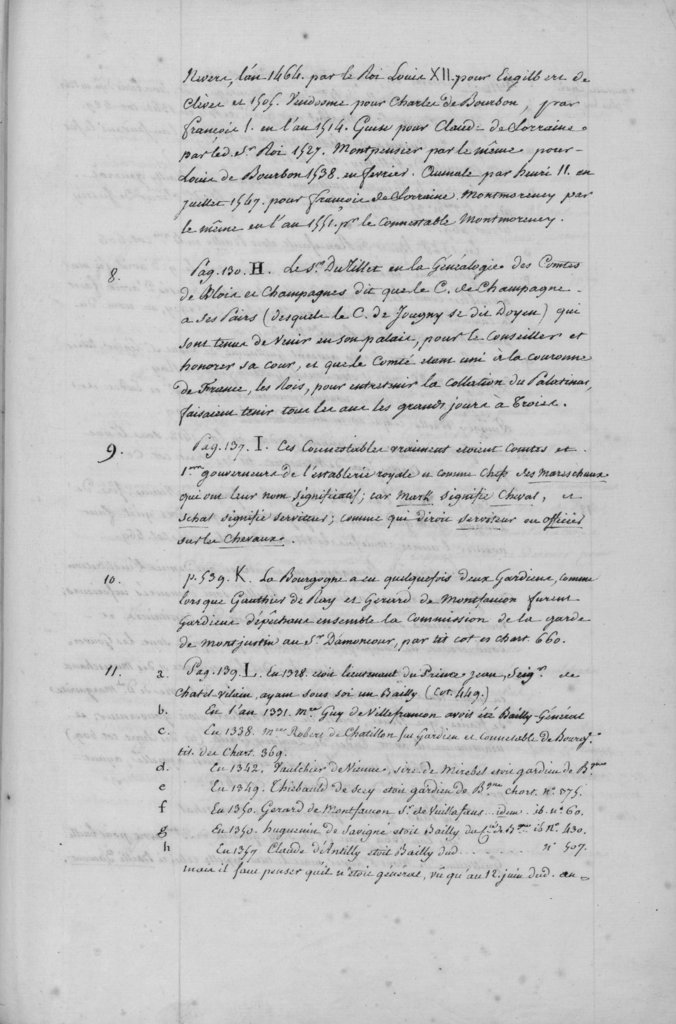 Nevers, l'an 1464. par le Roi Louis XII. pour Engilbert de
Clèves et 1505. Vendosme pour Charles de Bourbon, par
françois I. en l'an 1514. Guise pour Claude de Lorraine
par led. Sr. Roi 1527. Montpensier par le même pour
Louis de Bourbon 1538. en fevrier. Aumale par henri II. en
juillet 1547. pour françois de Lorraine. Montmorency par
le même en l'an 1551. pr. le connestable Montmorency.
8. Pag. 130. H. Le Sr. DuTillet en la Généalogie des Comtes
de Blois et Champagnes dit que le C. de Champagne
a ses Pairs (desquels le C. de Jougny se dit Doyen) qui
sont tenus de venir en son palais, pour le Conseiller et
honorer sa cour, et que le Comté étant uni à la couronne
de France, les Rois, pour entretenir la collation du Palatinat,
faisaient tenir tous les ans les grands jours à Troies.
9. Pag. 137. I. Ces Connestables vraiment étoient Comtes et
1ers gouverneurs de l'establerie royale et comme Chefs des Mareschaux
qui ont leur nom significatif; car Mark signifie Cheval, et
schal signifie serviteur; comme qui diroit serviteur ou officier
sur les Chevaux.
10. p. 539. K. La Bourgogne a eu quelquefois deux Gardiens, comme
lorsque Gauthier de Ray et Gerard de Montfaucon furent
Gardiens dépêchans ensemble la Commission de la garde
de montjustin au Sr. Damoncour, par tit. cot es chart. 660.
11. a. Pag. 139. L. En 1328. étoit lieutenant du Prince Jean, Seigr. de
Chatel vilain, ayant sous soi un Bailly (Cot. 449.)
b. En l'an 1331. Mre Guy de Villefrancon avoit été Bailly-Général
c. En 1338. Mre Robert de Chatillon fut Gardien et connétable de Bourgne
tit. des Chart. 369.
d. En 1342. Vaulchier de Vienne, sire de Mirebel étoit gardien de Bgne
e En 1349. Thiebauld de Scey étoit gardien de Bgne chart. n°. 375.
f En 1350. Gerard de Montfaucon Sr. de Vuillafans idem ib. n°. 60.
g En 1350. huguenin de Savigne étoit Bailly du Cté de Bgne ib. n°. 430.
h En 1357 Claude d'Antilly étoit Bailly dud. . . . . . . . n°. 507.
mais il faut penser qu'il n'étoit général, vû qu'au 12. juin dud. an-